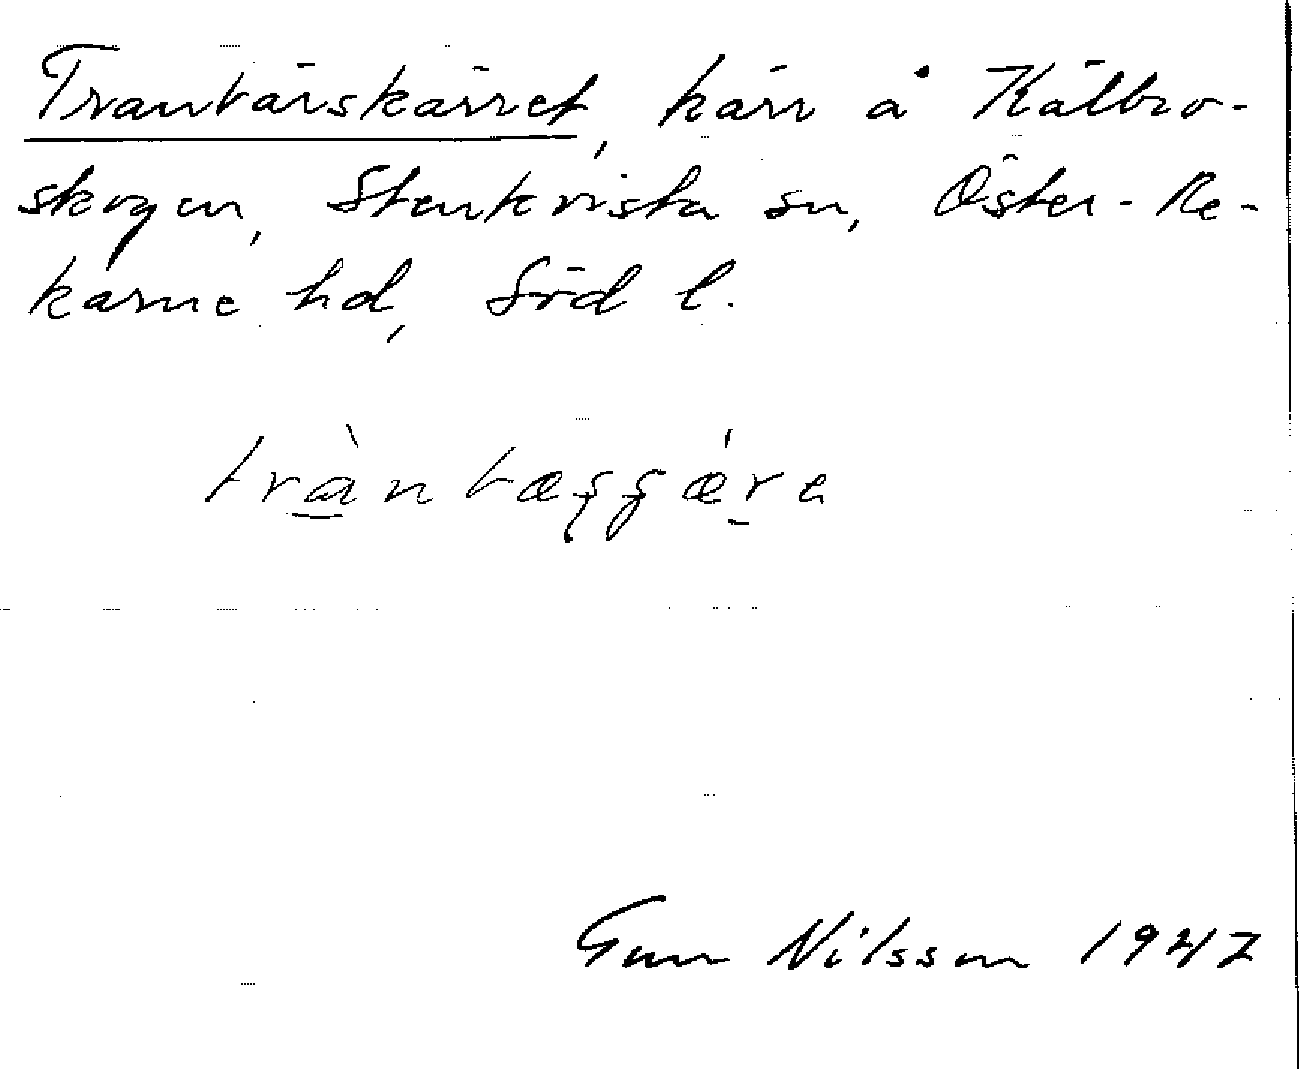 Tranbärskärret, kärr å Kälbro-
skogen, Stenkvista sn, Öster-Re-
karne hd, Söd l.
trànbæşşæ̀re
Gun Nilsson 1947